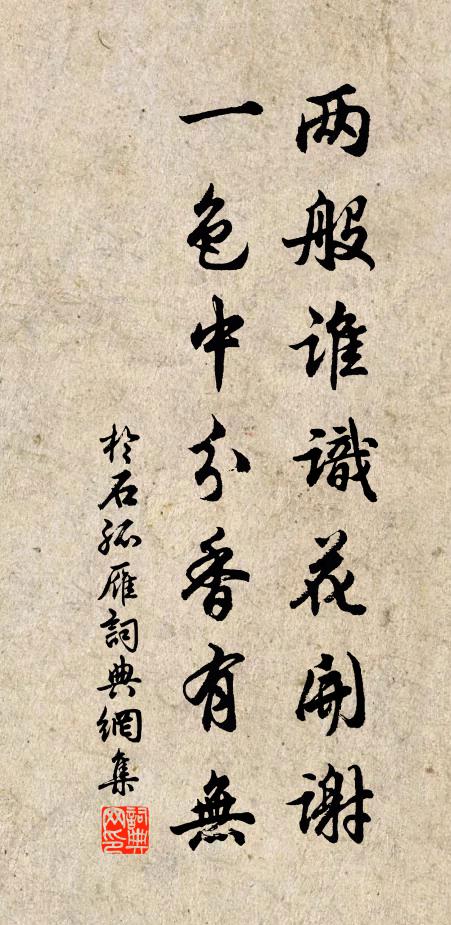 两般谁識花開谢
一色中分香有無
於石孤雁詞典網集
詞典网印